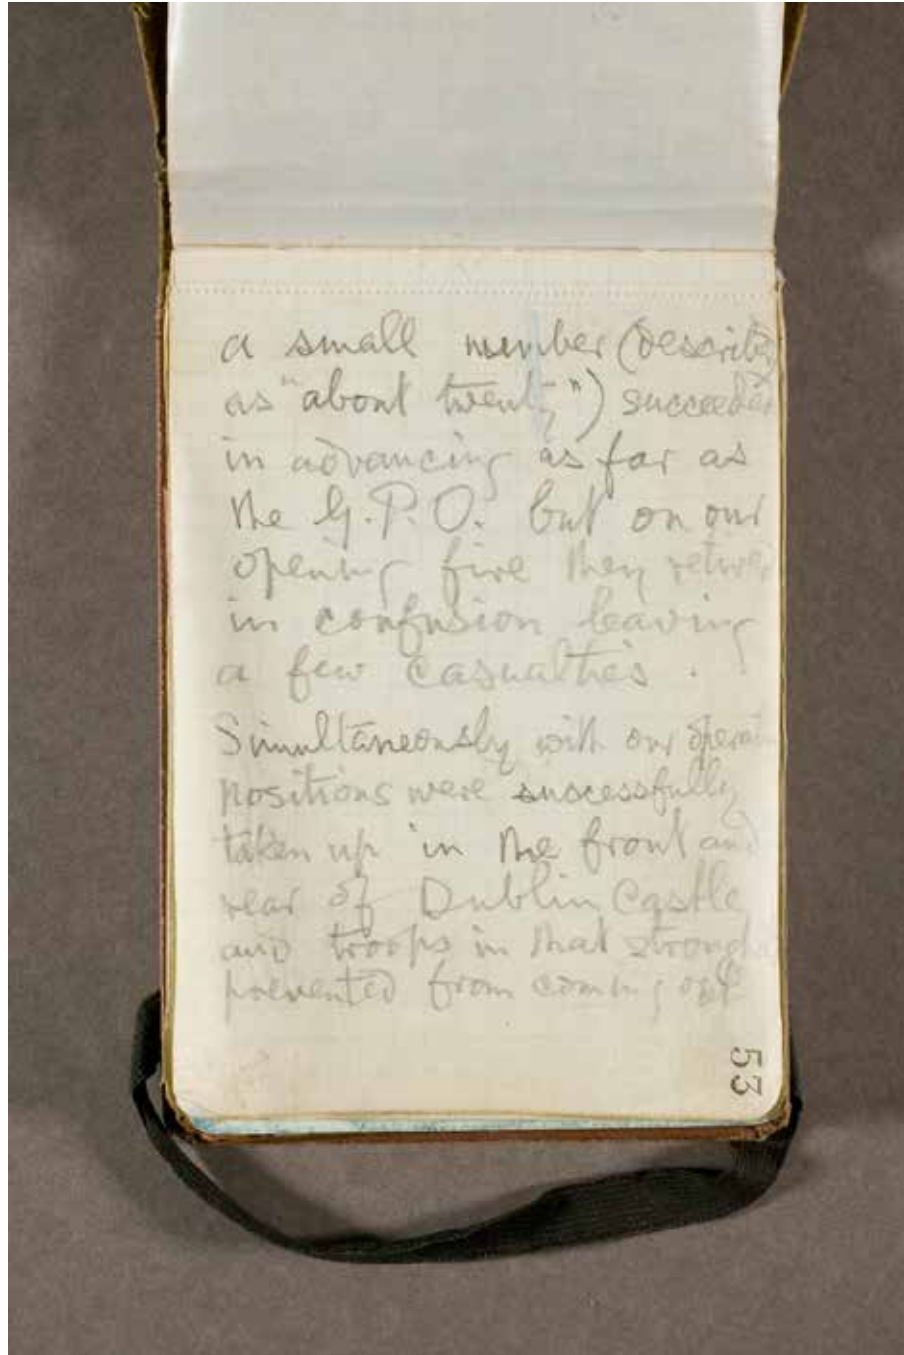 a small number (described
as "about twenty") succeeded
in advancing as far as
the G.P.O. but on our
opening fire they retired
in confusion leaving
a few casualties.
Simultaneously with our
positions were successfully
taken up in the front and
rear of Dublin Castle
and troops in that
prevented from coming out
53